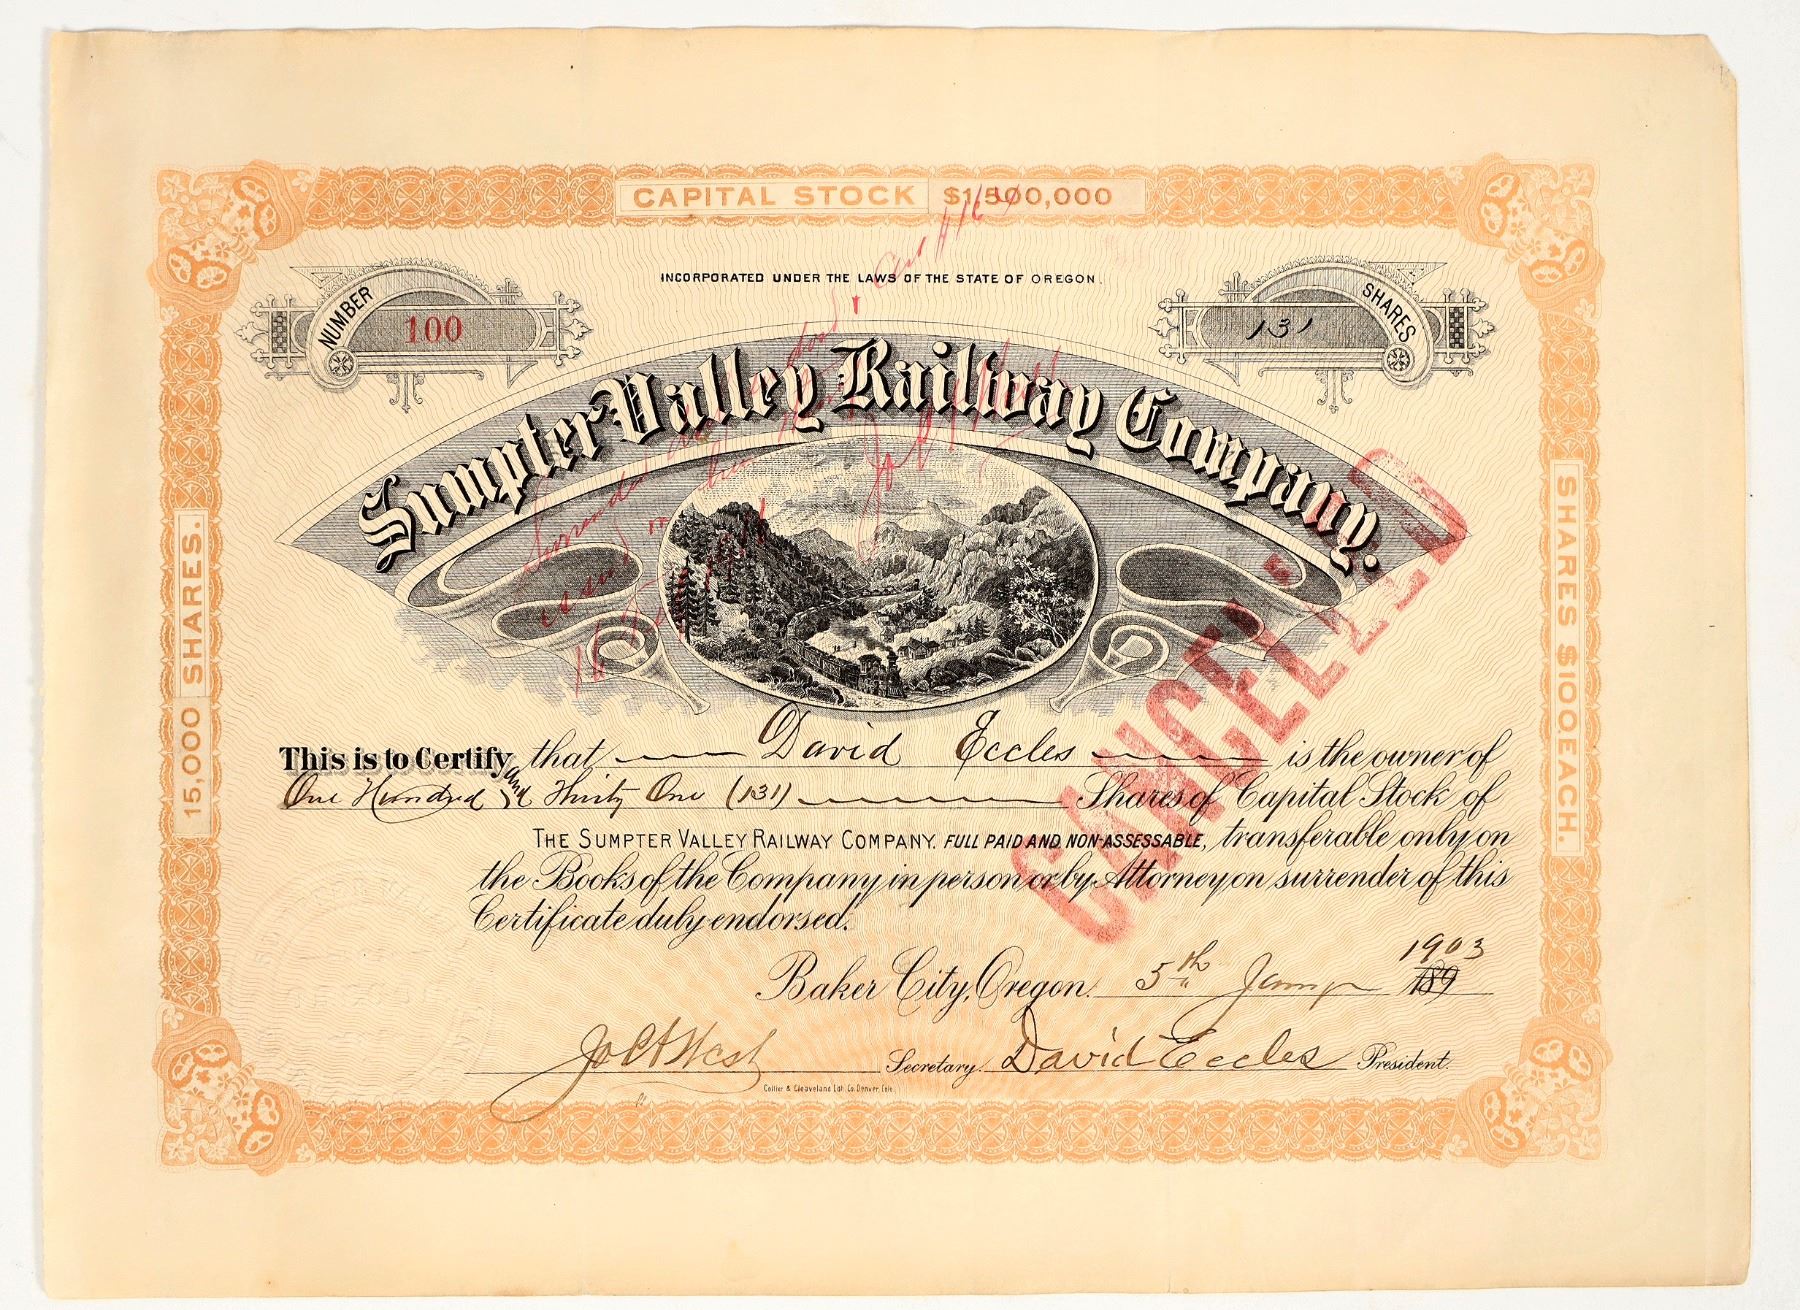 CAPITAL STOCK $1,500,000
INCORPORATED UNDER THE LAWS OF THE STATE OF OREGON.
NUMBER 100
131 SHARES
Sumpter Valley Railway Company.
CANCELLED
15,000 SHARES.
SHARES $100 EACH.
This is to Certify that David Eccles is the owner of
One Hundred and Thirty One (131) Shares of Capital Stock of
THE SUMPTER VALLEY RAILWAY COMPANY. FULL PAID AND NON-ASSESSABLE, transferable only on
the Books of the Company in person or by Attorney on surrender of this
Certificate duly endorsed.
Baker City, Oregon. 5th 189 1903
Secretary. David Eccles President.
Collier & Cleaveland Lith. Co. Denver, Colo.